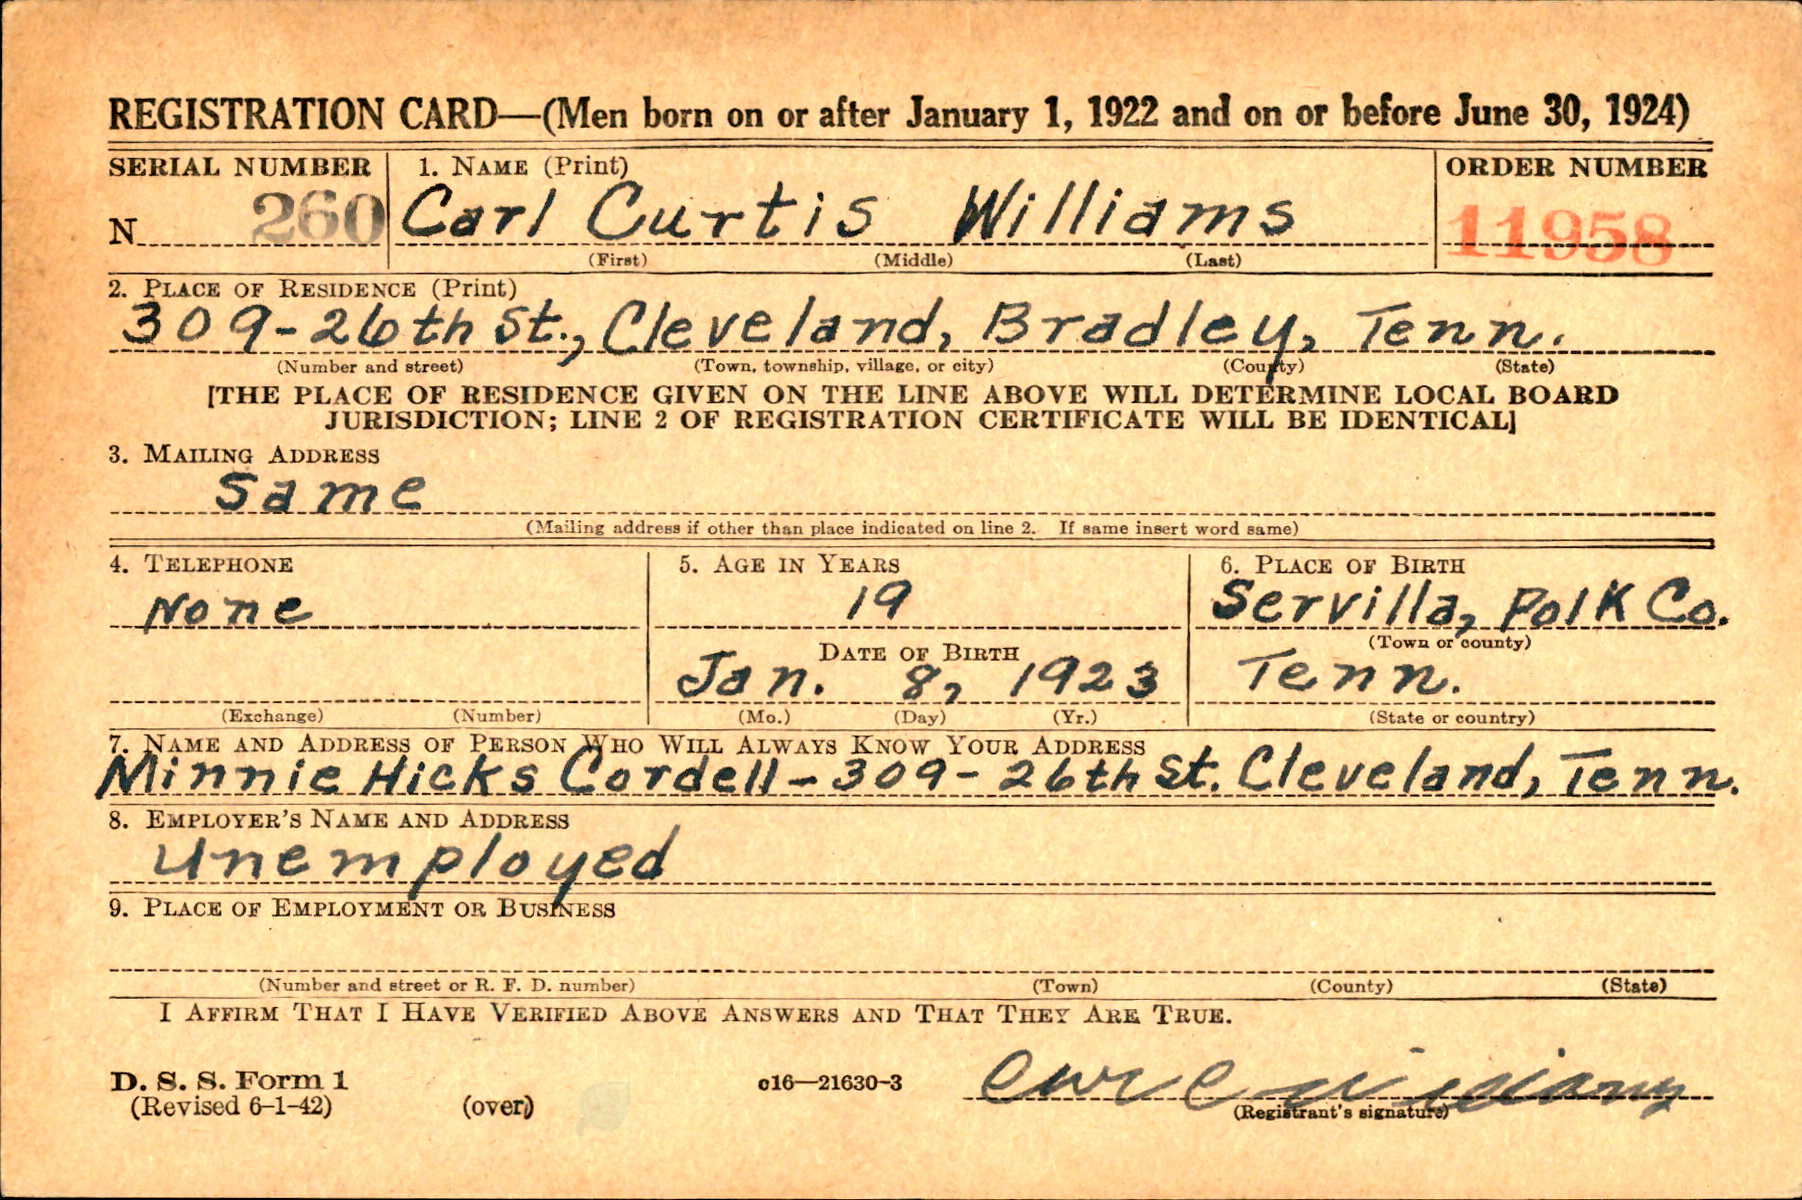 REGISTRATION CARD—(Men born on or after January 1, 1922 and on or before June 30, 1924)
SERIAL NUMBER 1. NAME (Print) ORDER NUMBER
N 260 Carl Curtis Williams 11958
(First) (Middle) (Last)
2. PLACE OF RESIDENCE (Print)
309-26th St., Cleveland, Bradley, Tenn.
(Number and street) (Town, township, village, or city) (County) (State)
[THE PLACE OF RESIDENCE GIVEN ON THE LINE ABOVE WILL DETERMINE LOCAL BOARD
JURISDICTION; LINE 2 OF REGISTRATION CERTIFICATE WILL BE IDENTICAL]
3. MAILING ADDRESS
Same
(Mailing address if other than place indicated on line 2. If same insert word same)
4. TELEPHONE 5. AGE IN YEARS 6. PLACE OF BIRTH
None 19 Servilla, Polk Co.
DATE OF BIRTH (Town or county)
Jan. 8, 1923 Tenn.
(Exchange) (Number) (Mo.) (Day) (Yr.) (State or country)
7. NAME AND ADDRESS OF PERSON WHO WILL ALWAYS KNOW YOUR ADDRESS
Minnie Hicks Cordell - 309-26th St. Cleveland, Tenn.
8. EMPLOYER'S NAME AND ADDRESS
Unemployed
9. PLACE OF EMPLOYMENT OR BUSINESS
(Number and street or R. F. D. number) (Town) (County) (State)
I AFFIRM THAT I HAVE VERIFIED ABOVE ANSWERS AND THAT THEY ARE TRUE.
D. S. S. Form 1
(Revised 6-1-42) (over) c16—21630-3
(Registrant's signature)